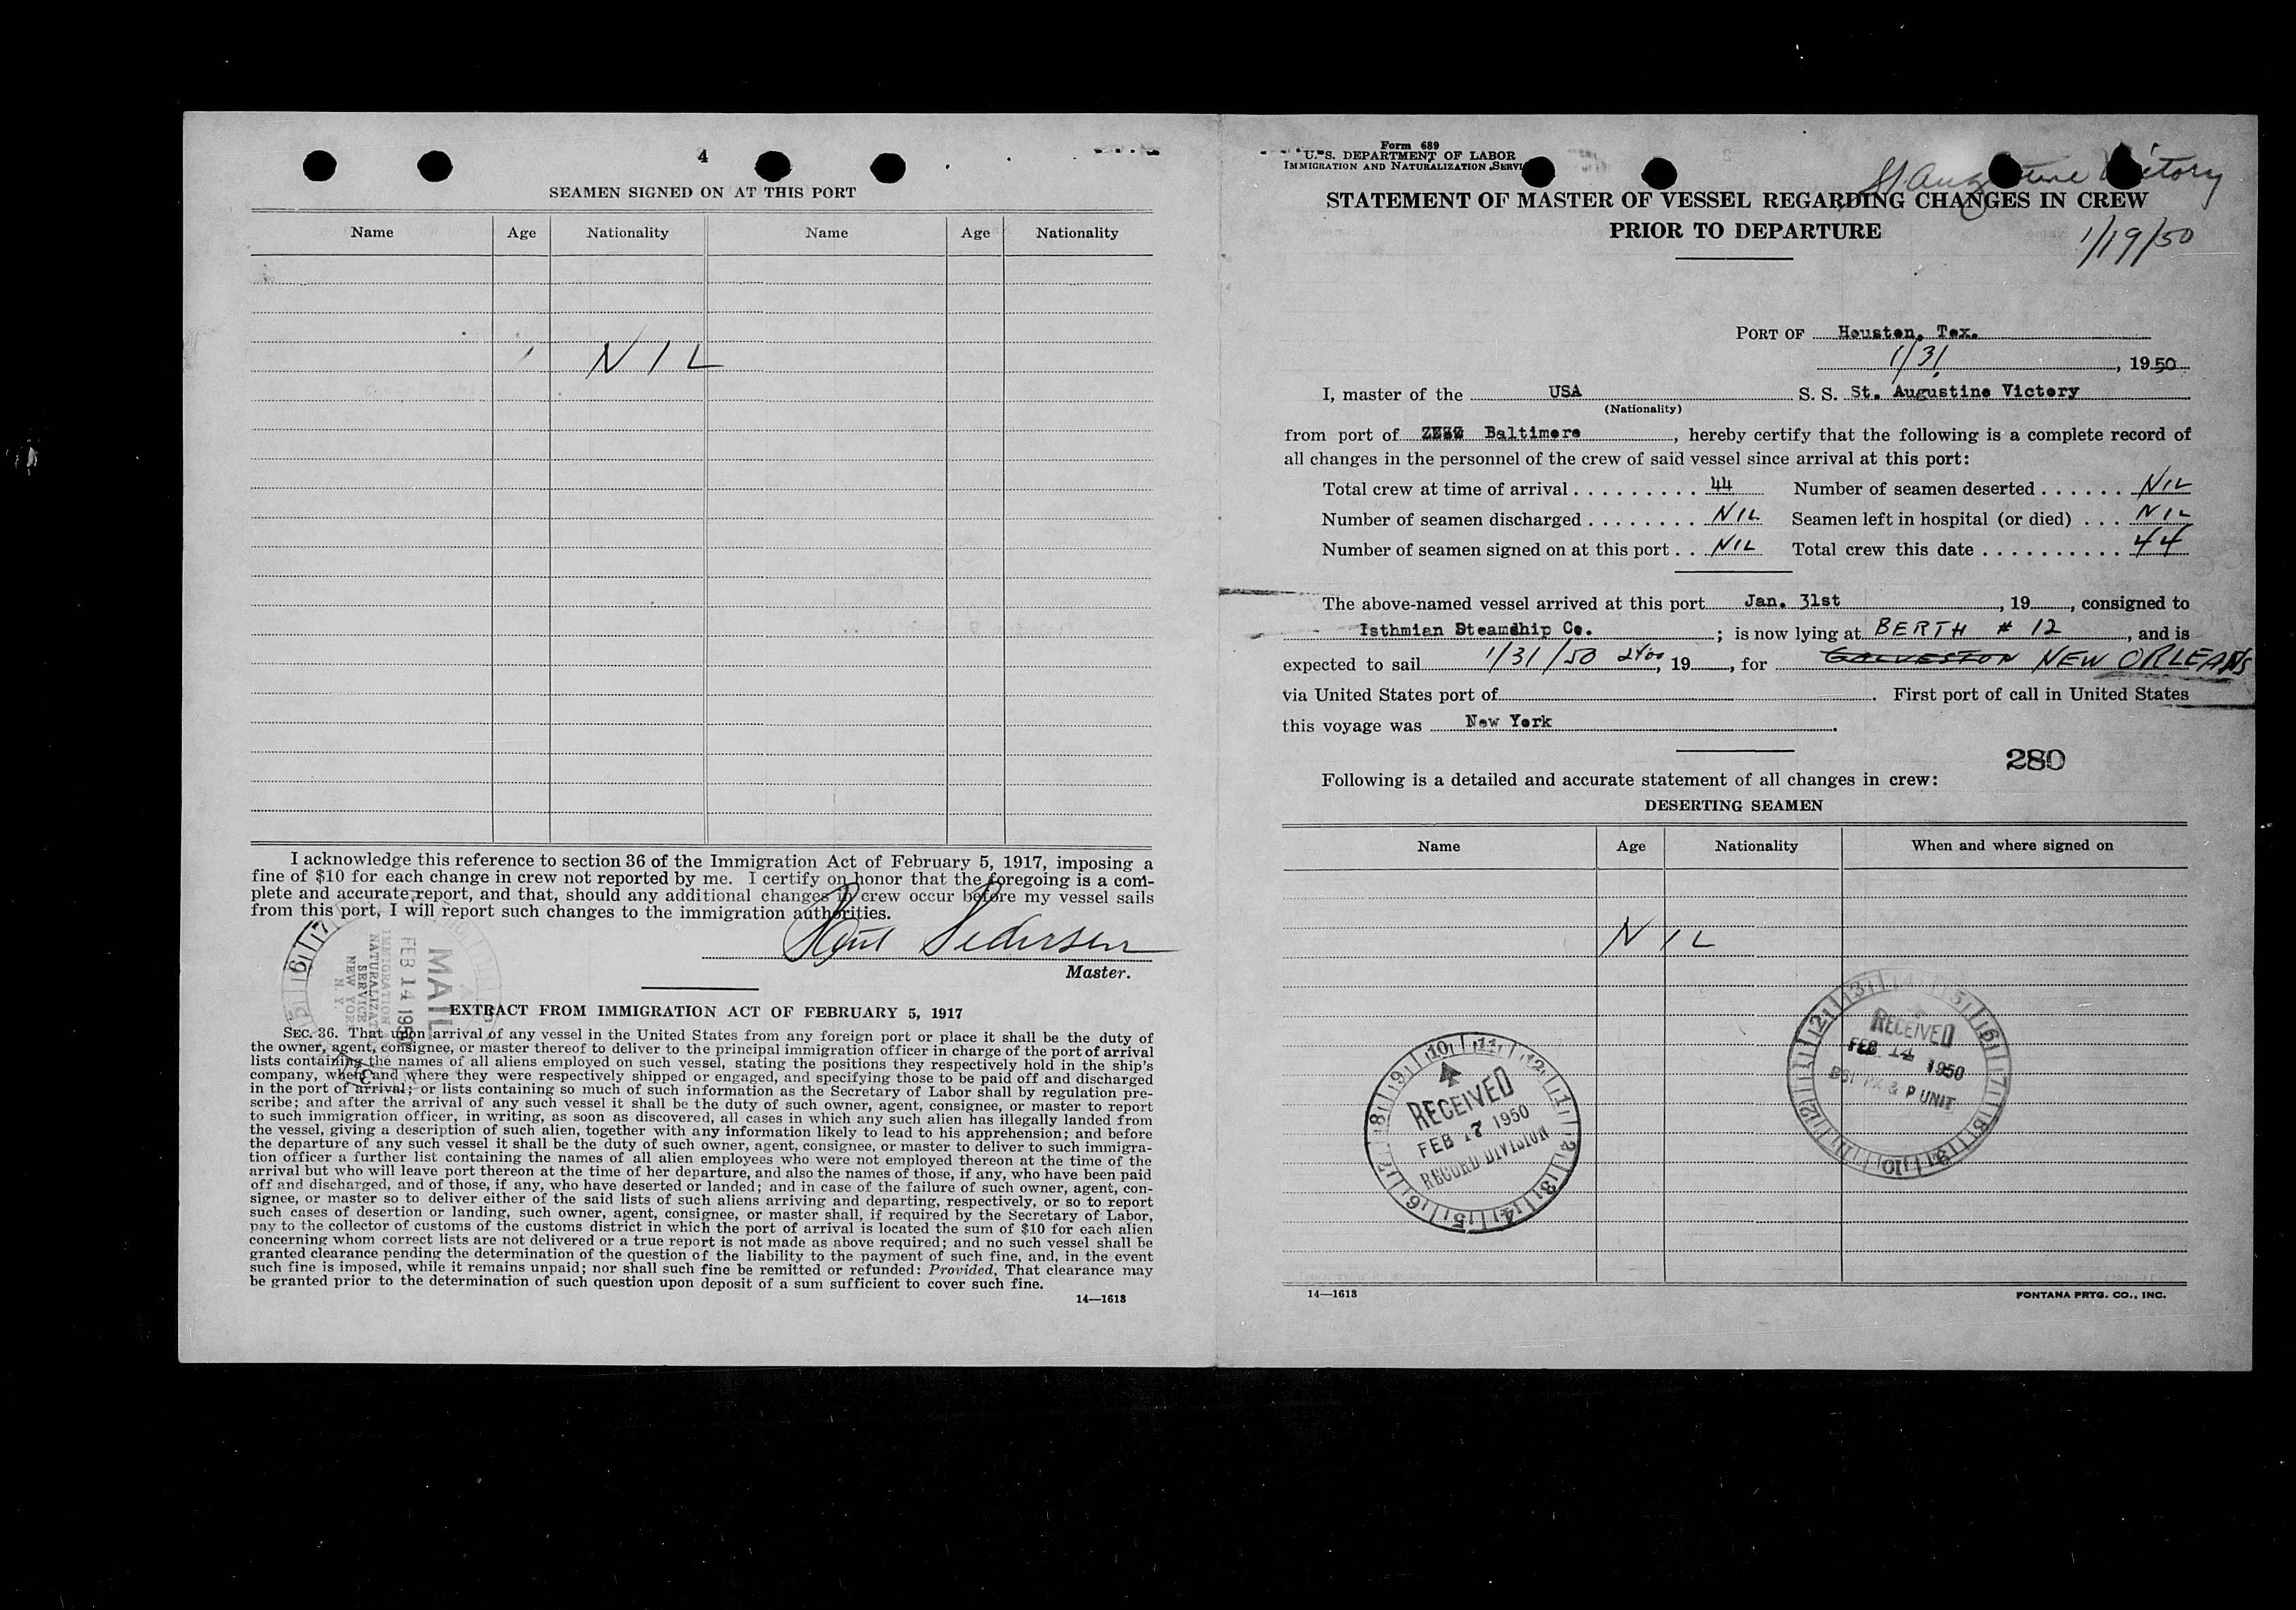 4
SEAMEN SIGNED ON AT THIS PORT
Name Age Nationality Name Age Nationality
NIL
I acknowledge this reference to section 36 of the Immigration Act of February 5, 1917, imposing a
fine of $10 for each change in crew not reported by me. I certify on honor that the foregoing is a com-
plete and accurate report, and that, should any additional changes in crew occur before my vessel sails
from this port, I will report such changes to the immigration authorities.
Pedersen
Master.
MAIL
FEB 14 1950
IMMIGRATION
NATURALIZAT
SERVICE
NEW YORK
N. Y.
EXTRACT FROM IMMIGRATION ACT OF FEBRUARY 5, 1917
SEC. 36. That upon arrival of any vessel in the United States from any foreign port or place it shall be the duty of
the owner, agent, consignee, or master thereof to deliver to the principal immigration officer in charge of the port of arrival
lists containing the names of all aliens employed on such vessel, stating the positions they respectively hold in the ship's
company, when and where they were respectively shipped or engaged, and specifying those to be paid off and discharged
in the port of arrival; or lists containing so much of such information as the Secretary of Labor shall by regulation pre-
scribe; and after the arrival of any such vessel it shall be the duty of such owner, agent, consignee, or master to report
to such immigration officer, in writing, as soon as discovered, all cases in which any such alien has illegally landed from
the vessel, giving a description of such alien, together with any information likely to lead to his apprehension; and before
the departure of any such vessel it shall be the duty of such owner, agent, consignee, or master to deliver to such immigra-
tion officer a further list containing the names of all alien employees who were not employed thereon at the time of the
arrival but who will leave port thereon at the time of her departure, and also the names of those, if any, who have been paid
off and discharged, and of those, if any, who have deserted or landed; and in case of the failure of such owner, agent, con-
signee, or master so to deliver either of the said lists of such aliens arriving and departing, respectively, or so to report
such cases of desertion or landing, such owner, agent, consignee, or master shall, if required by the Secretary of Labor,
pay to the collector of customs of the customs district in which the port of arrival is located the sum of $10 for each alien
concerning whom correct lists are not delivered or a true report is not made as above required; and no such vessel shall be
granted clearance pending the determination of the question of the liability to the payment of such fine, and, in the event
such fine is imposed, while it remains unpaid; nor shall such fine be remitted or refunded: Provided, That clearance may
be granted prior to the determination of such question upon deposit of a sum sufficient to cover such fine.
14—1613
Form 689
U. S. DEPARTMENT OF LABOR
IMMIGRATION AND NATURALIZATION SERVI
St Augustine Victory
STATEMENT OF MASTER OF VESSEL REGARDING CHANGES IN CREW
PRIOR TO DEPARTURE
1/19/50
PORT OF Houston, Tex.
1/31, 1950
I, master of the USA S. S. St. Augustine Victory
(Nationality)
from port of Baltimore, hereby certify that the following is a complete record of
all changes in the personnel of the crew of said vessel since arrival at this port:
Total crew at time of arrival 44 Number of seamen deserted NIL
Number of seamen discharged NIL Seamen left in hospital (or died) NIL
Number of seamen signed on at this port NIL Total crew this date 44
The above-named vessel arrived at this port Jan. 31st, 19, consigned to
Isthmian Steamship Co.; is now lying at BERTH # 12, and is
expected to sail 1/31/50 2400, 19, for GALVESTON NEW ORLEANS
via United States port of. First port of call in United States
this voyage was New York.
280
Following is a detailed and accurate statement of all changes in crew:
DESERTING SEAMEN
Name Age Nationality When and where signed on
NIL
RECEIVED
FEB 14 1950
BSI & P UNIT
RECEIVED
FEB 17 1950
RECORD DIVISION
14—1613 FONTANA PRTG. CO., INC.